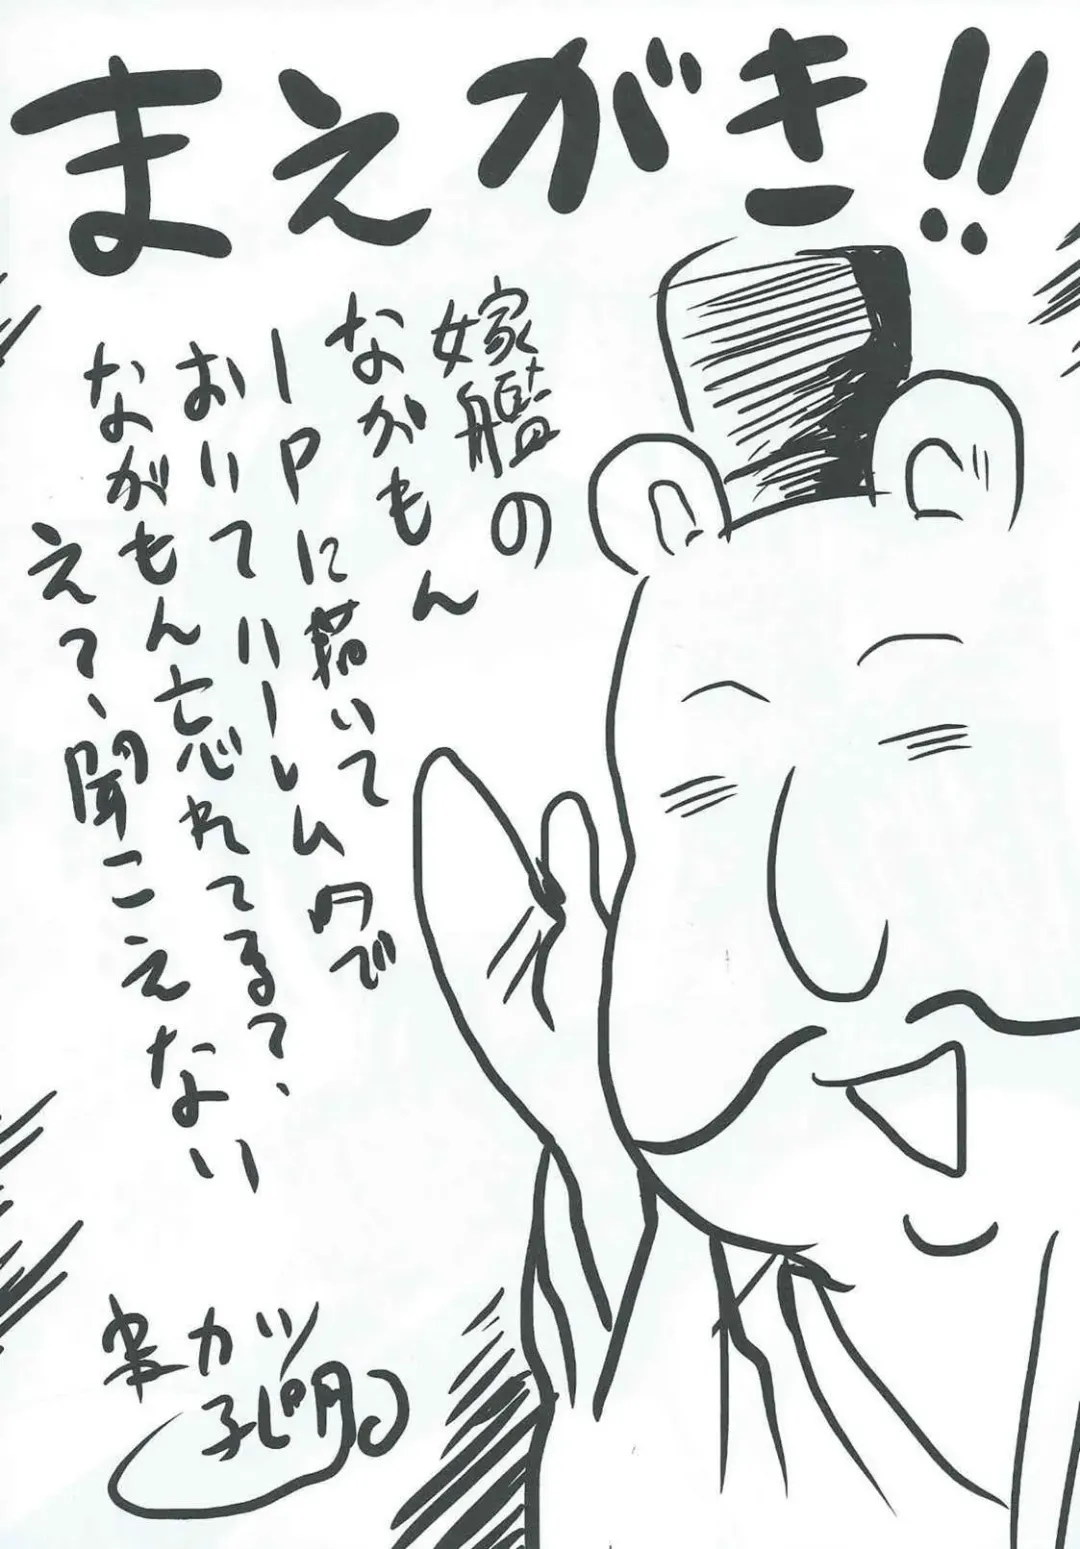 まえがき!!
嫁艦の
ながもん
1Pに描いて
おいてハーレム内で
ながもん忘れてるって、
えっ、聞こえない
カツ
孔明